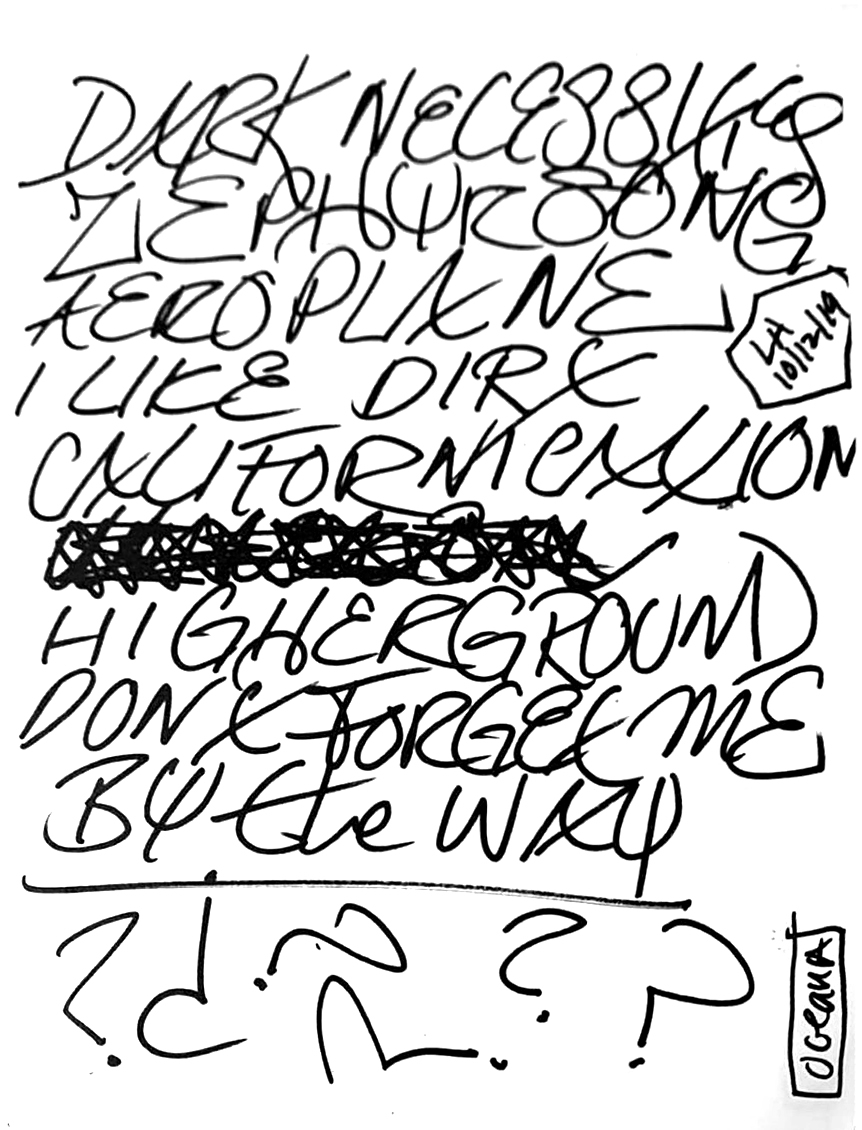 DARK NECESSITIES
ZEPHYR SONG
AEROPLANE
LA
10/12/19
I LIKE DIRT
CALIFORNICATION
HIGHER GROUND
DON'T FORGET ME
BY the WAY
? ¿ ? ? ? ?
OCEANA